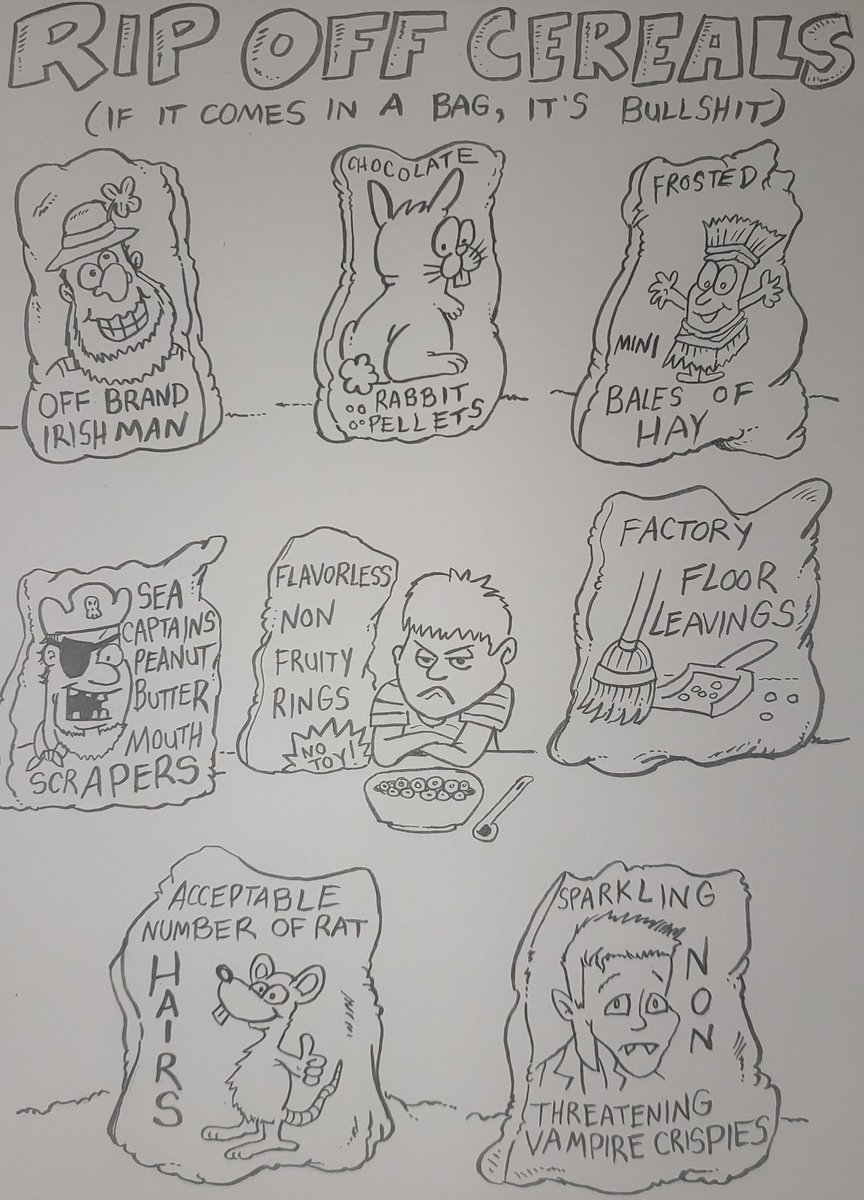 RIP OFF CEREALS
(IF IT COMES IN A BAG, IT'S BULLSHIT)
OFF BRAND
IRISH MAN
CHOCOLATE
RABBIT
PELLETS
FROSTED
MINI
BALES OF
HAY
SEA
CAPTAINS
PEANUT
BUTTER
MOUTH
SCRAPERS
FLAVORLESS
NON
FRUITY
RINGS
NO
TOY!
FACTORY
FLOOR
LEAVINGS
ACCEPTABLE
NUMBER OF RAT
HAIRS
SPARKLING
NON
THREATENING
VAMPIRE CRISPIES